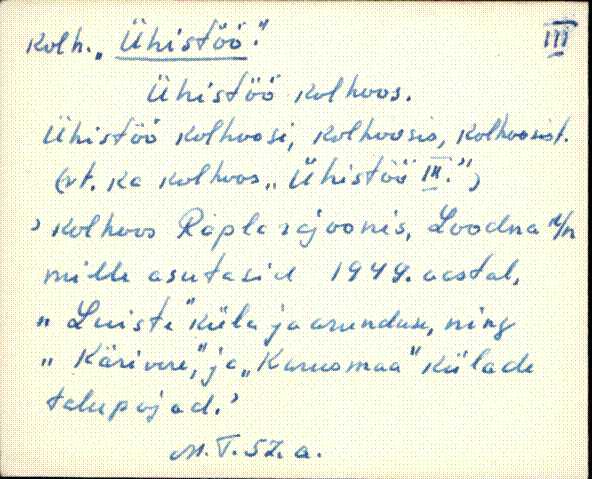 Kolh. „Ühistöö." III
Ühistöö kolhoos.
Ühistöö kolhoosi, kolhoosis, kolhoosist.
(vt. ka kolhoos „Ühistöö III.")
› Kolhoos Rapla rajoonis, Loodna k/n
mille asutasid 1949. aastal,
„Luiste" küla ja asunduse, ning
„Kärivere," ja „Kurusmaa" külade
talupojad.›
M.T. 52. a.